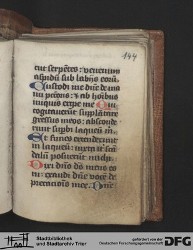 144
cut serpētes: venenum
aspidū sub labijs eorū.
Custodi me dn̄e de ma
nu p̄cc̄oris: & ab hoībus
iniquis eripe me Qui
cogitauerūt supplātare
gressus meos: abscond
erunt supb̄i laqueū m̄
Et funes extenderunt
in laqueū: iuxta it̄ scā
dalū posuerūt michi.
Dixi dn̄o ds̄ meus es
tu: exaudi dn̄e vocē de
precationis mee. Dn̄e
Stadtbibliothek
und Stadtarchiv Trier
Gefördert durch die
Deutsche Forschungsgemeinschaft
DFG